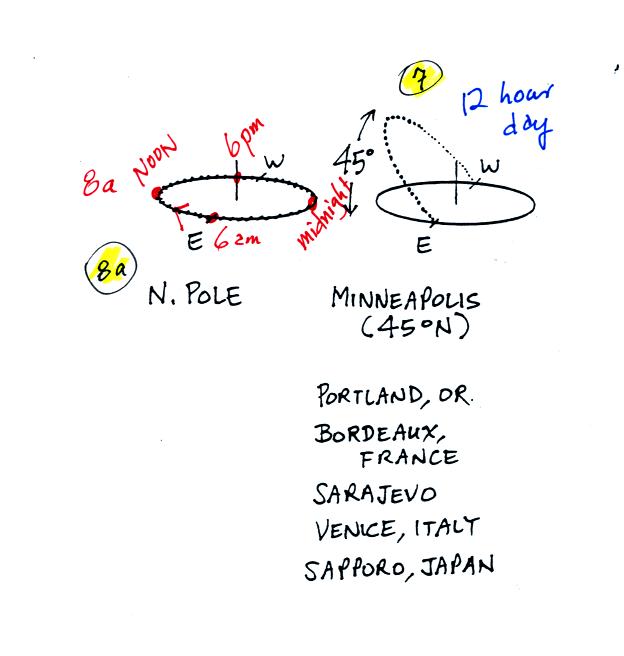 7
12 hour
day
6pm
W
NOON
8a
45°
W
midnight
E
6am
E
8a
N. POLE
MINNEAPOLIS
(45°N)
PORTLAND, OR.
BORDEAUX,
FRANCE
SARAJEVO
VENICE, ITALY
SAPPORO, JAPAN